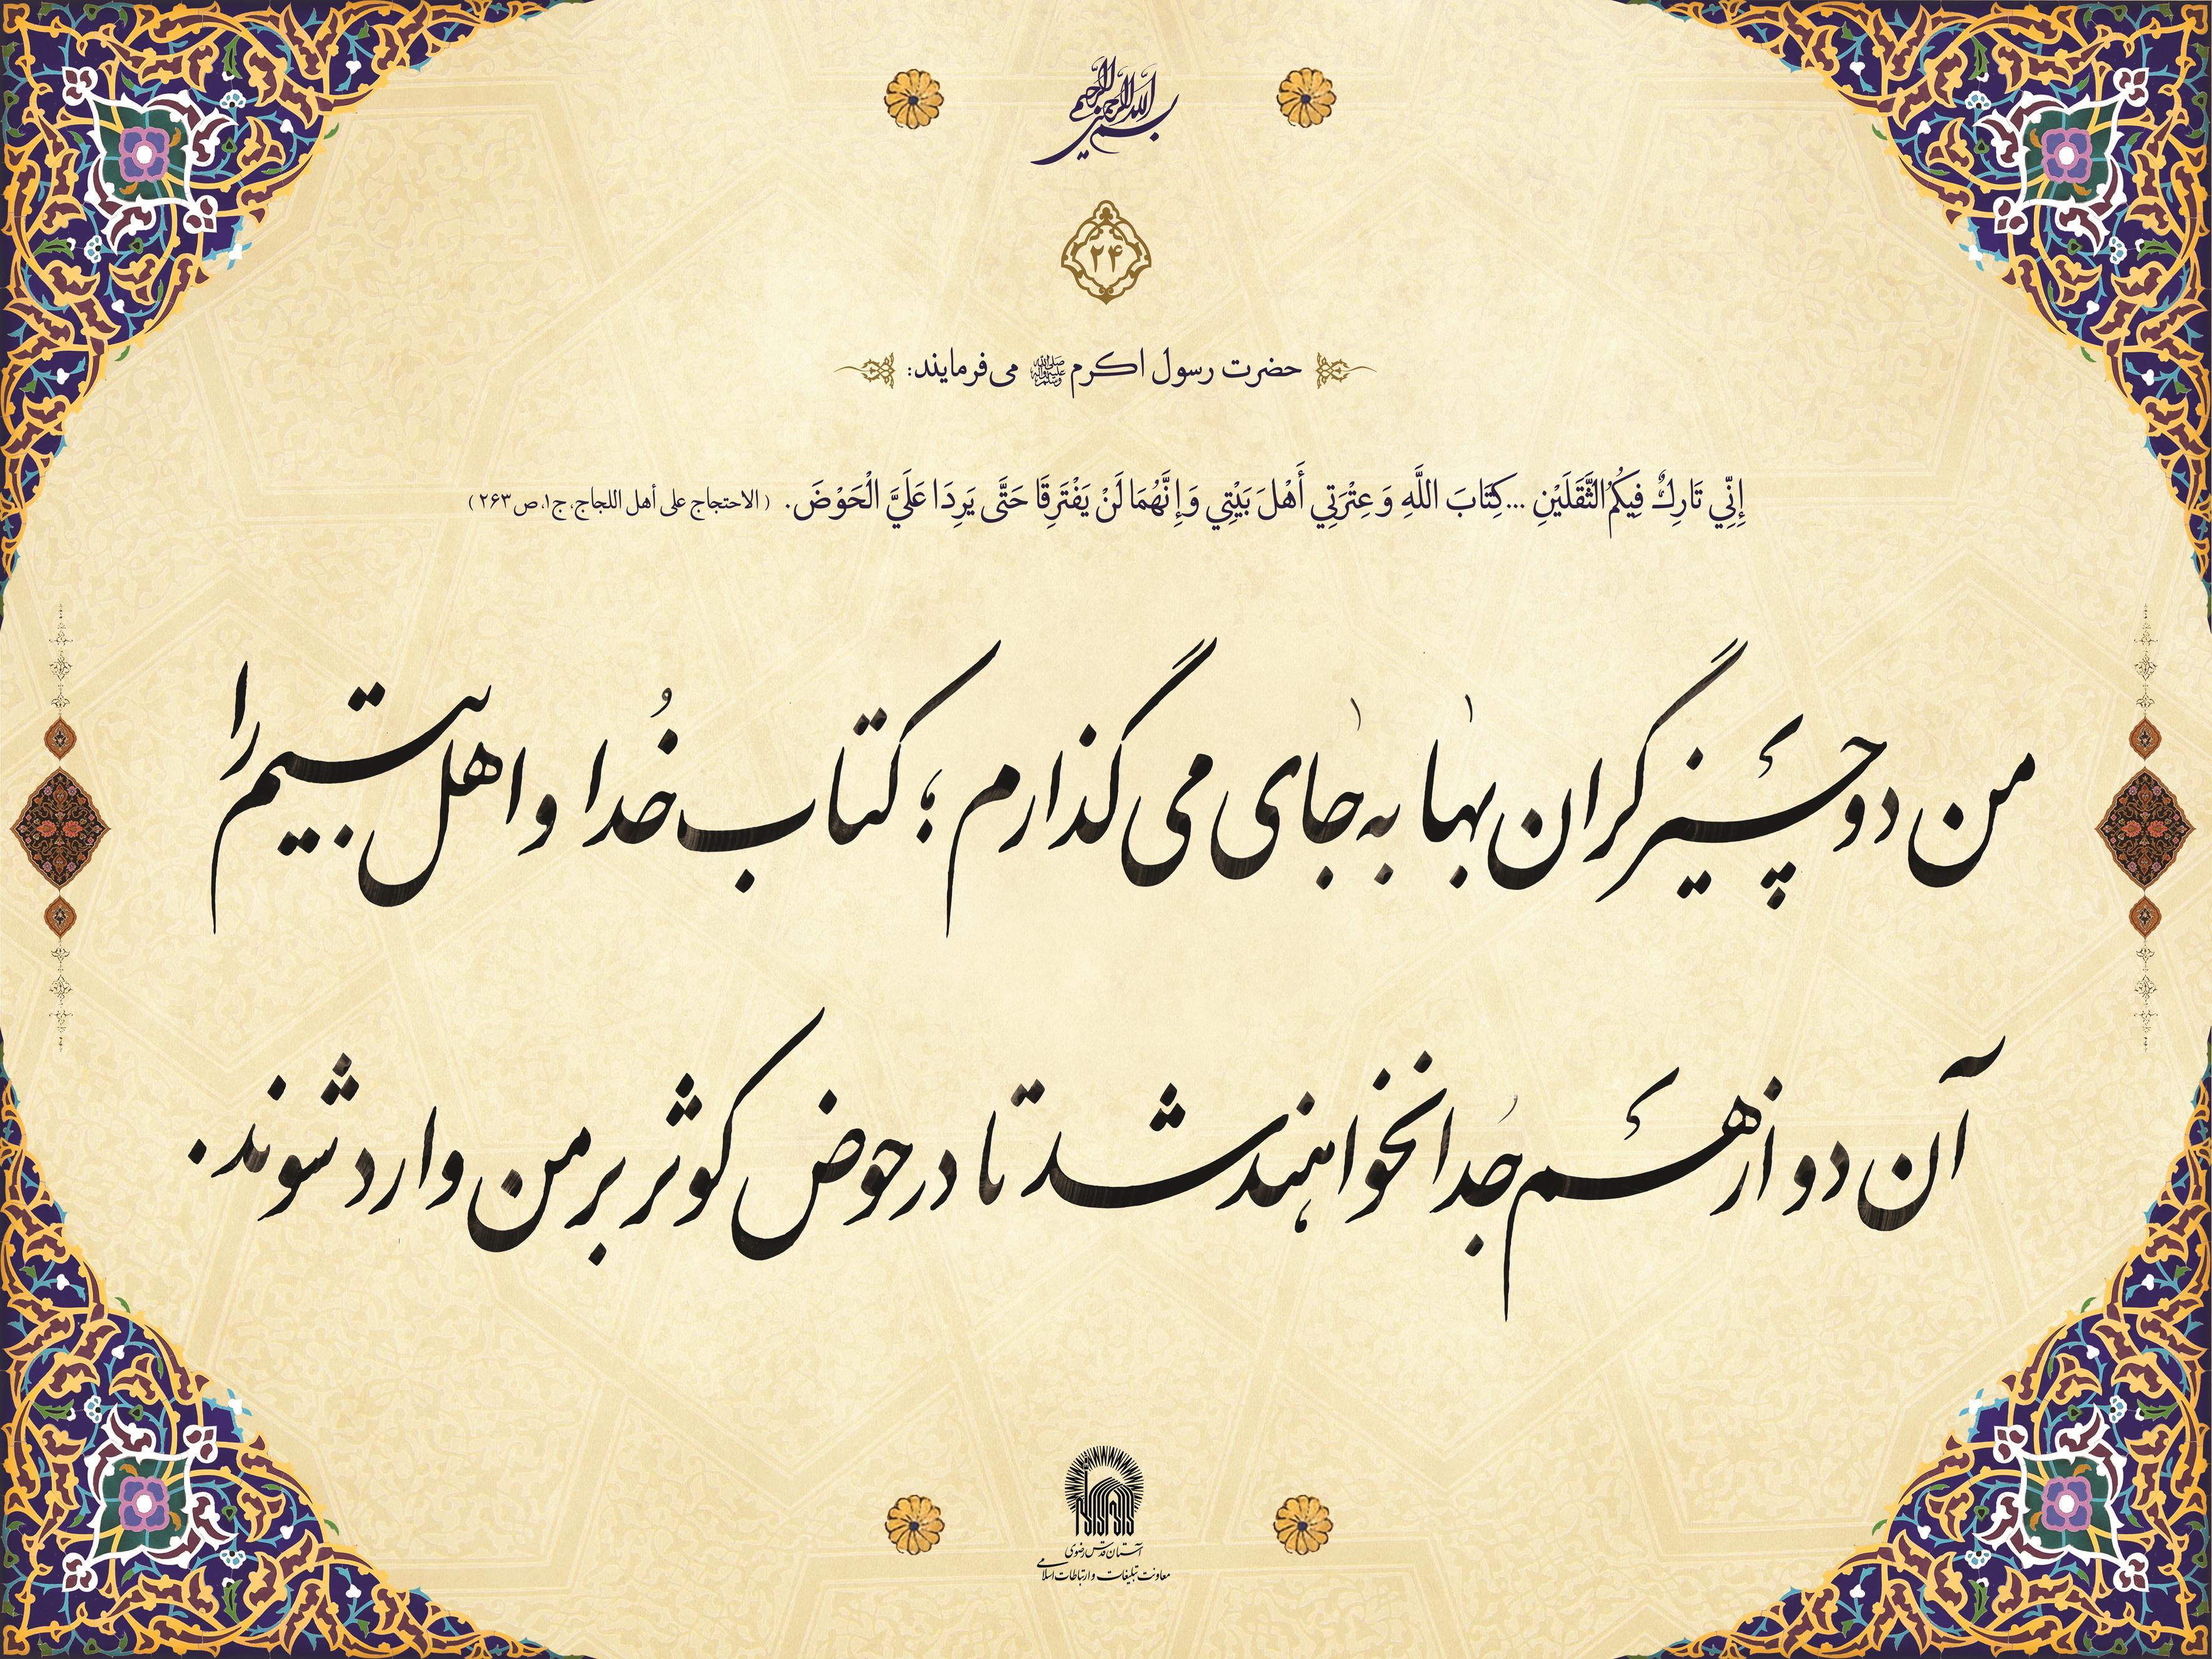 بسم الله الرحمن الرحیم
۲۴
حضرت رسول اکرم ﷺ می‌فرمایند:
إِنِّي تَارِكٌ فِيكُمُ الثَّقَلَيْنِ ... كِتَابَ اللَّهِ وَ عِتْرَتِي أَهْلَ بَيْتِي وَ إِنَّهُمَا لَنْ يَفْتَرِقَا حَتَّى يَرِدَا عَلَيَّ الْحَوْضَ. (الاحتجاج على أهل اللجاج، ج۱، ص ۲۶۳)
من دو چیز گران بها به جای می گذارم ؛ کتاب خُدا و اهل بیتم را
آن دو از هم جُدا نخواهند شد تا در حوض کوثر بر من وارد شوند.
آستان قدس رضوی
معاونت تبلیغات و ارتباطات اسلامی